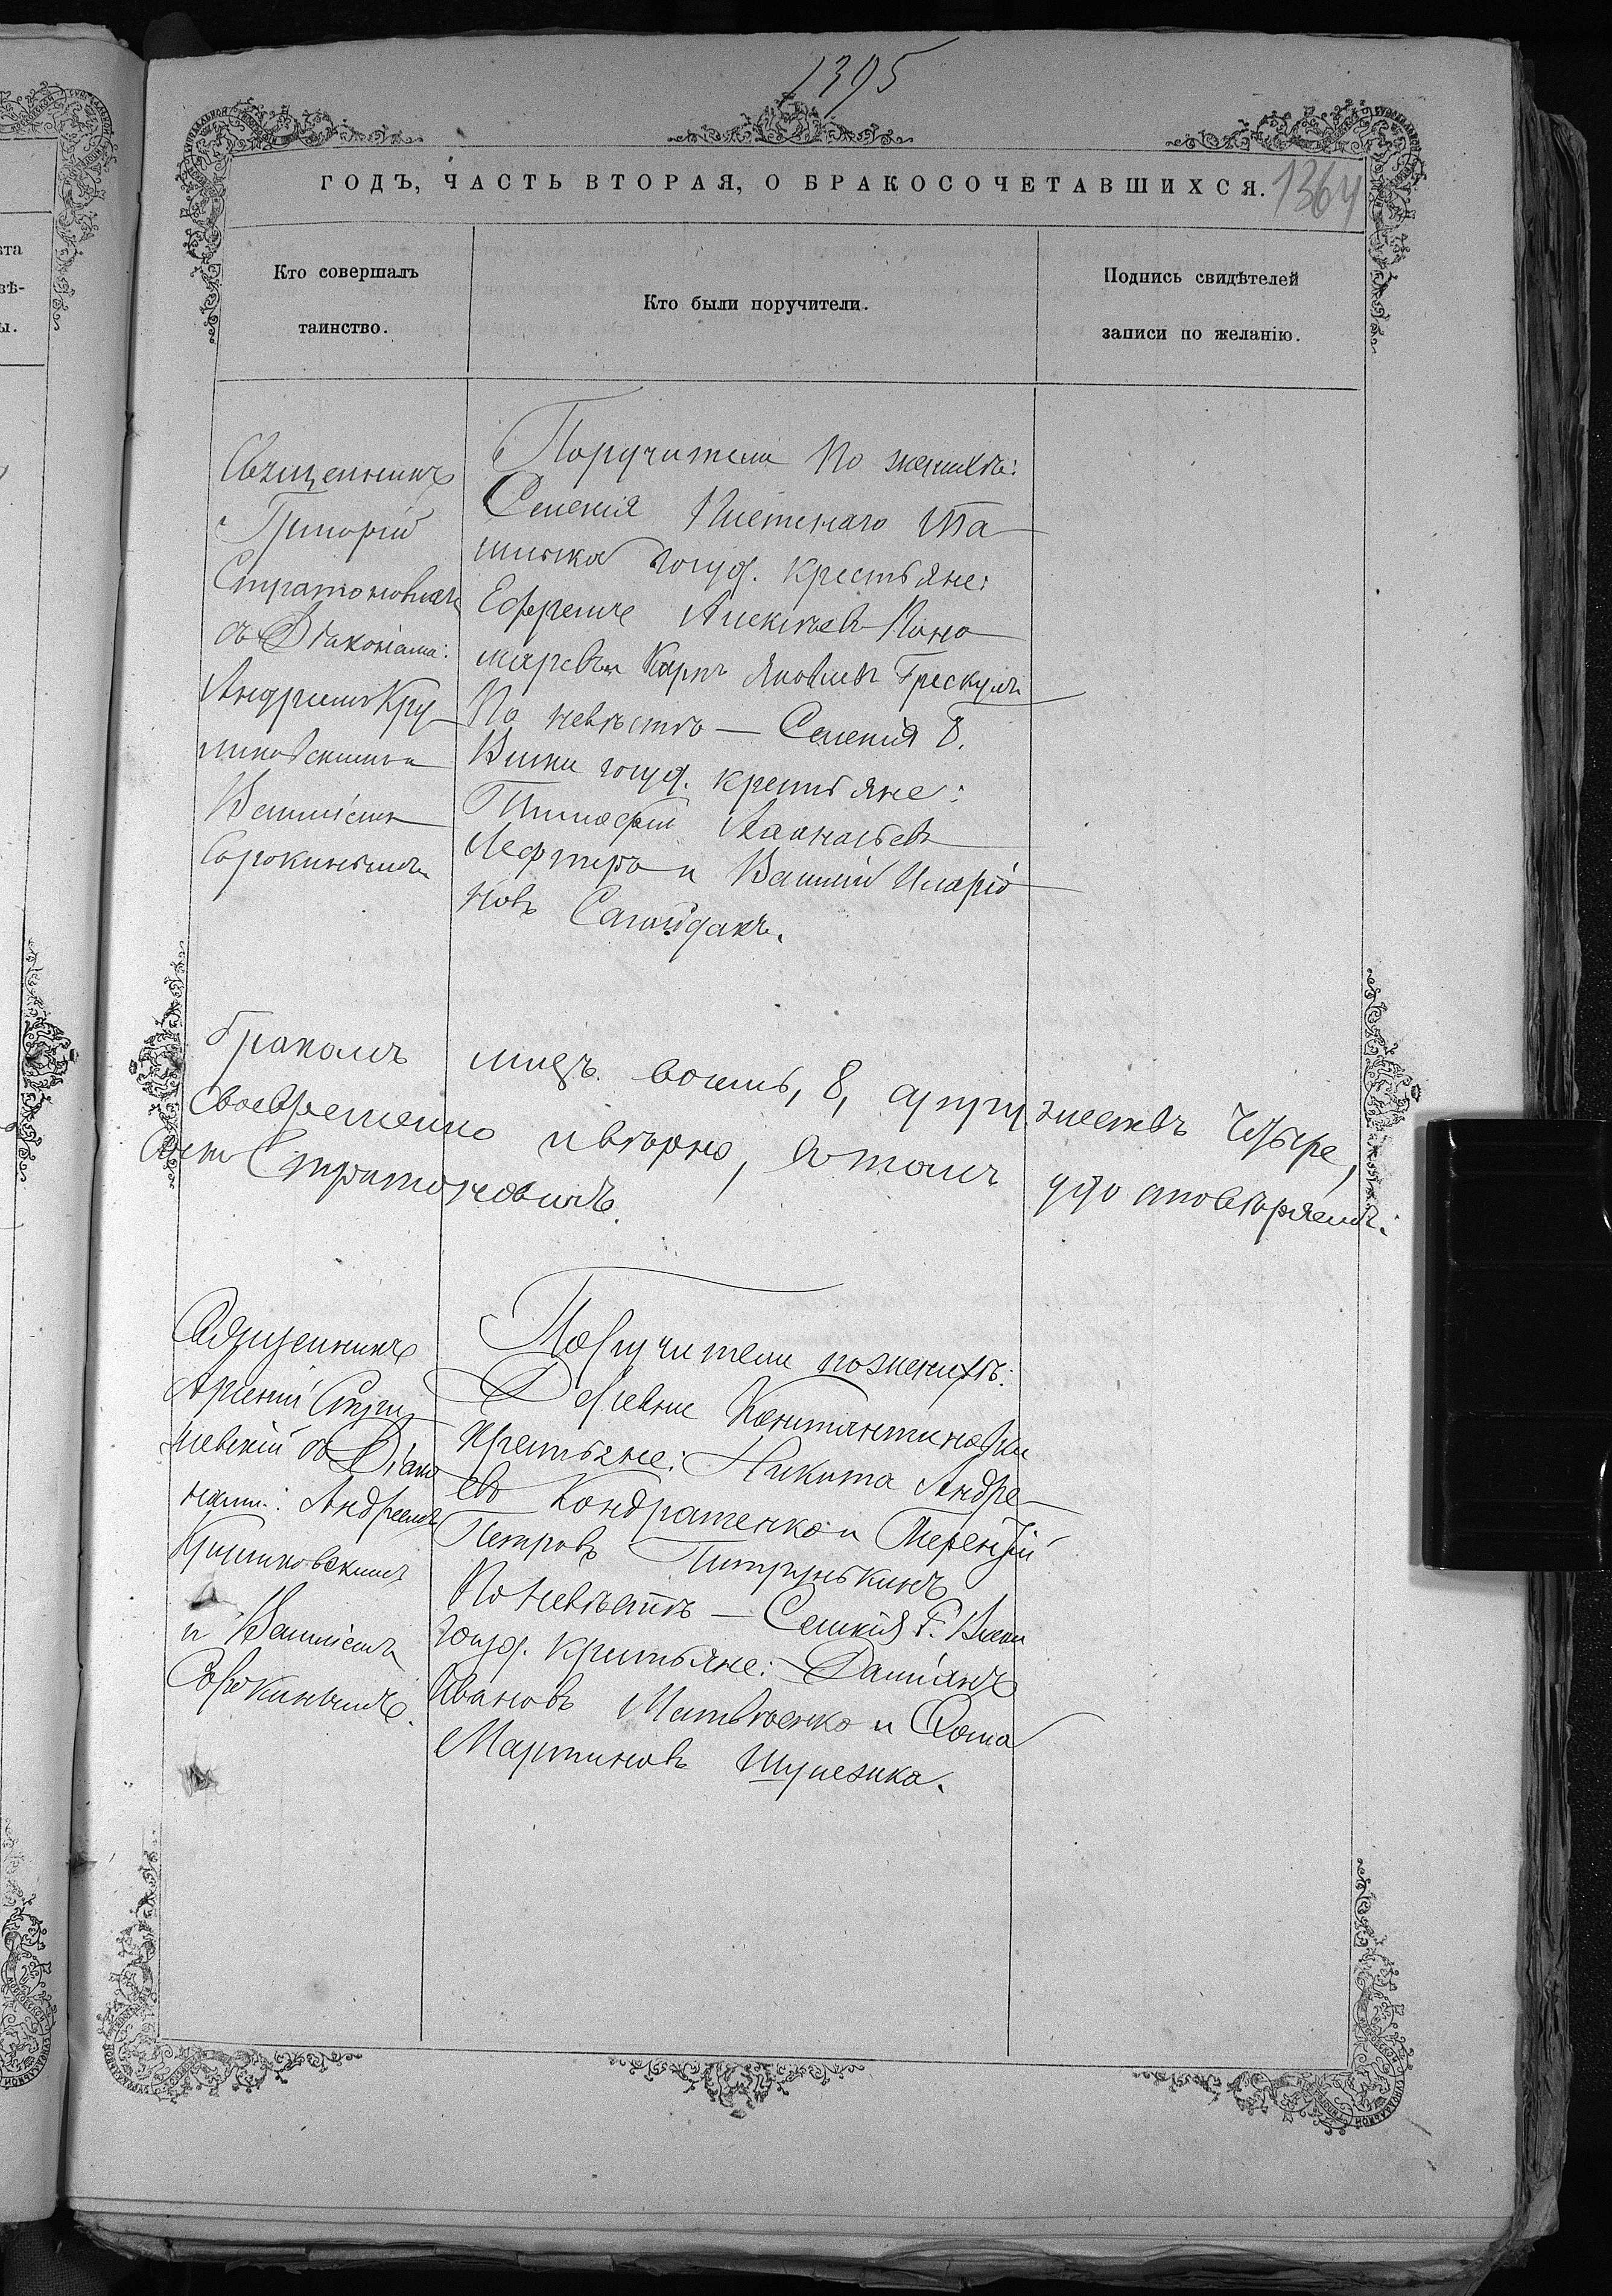 1395
ГОДЪ, ЧАСТЬ ВТОРАЯ, О БРАКОСОЧЕТАВШИХСЯ.
1364
Кто совершалъ
таинство.
Кто были поручители.
Подпись свидѣтелей
записи по желанію.
Священникъ
Григорій
Стратоновичъ
съ Діаконами:
Андреемъ Кру
ликовскимъ и
Василіемъ
Сорокинымъ
Поручители по женихѣ:
Селенія Плетенаго Та
шлыка госуд. крестьяне:
Ефремъ Алексѣевъ Поно
маревъ и Карпъ Яковлевъ Грескулъ
По невѣстѣ — Селенія Б.
Виски госуд. крестьяне:
Тимофей Аѳанасьевъ
Лефтеръ и Василій Иларіо
новъ Сагайдакъ.
бракомъ лицъ восемь, 8, супружествъ четыре,
своевременно и вѣрно, въ томъ удостовѣряемъ.
Стратоновичъ.
Священникъ
Арсеній
съ Діако
нами: Андреемъ
Круликовскимъ
и Василіемъ
Сорокинымъ.
Поручители по женихѣ:
Деревни Константиновки
крестьяне: Никита Андре
евъ Кондратенко и Терентій
Петровъ
По невѣстѣ — Селенія Б. Виски
госуд. крестьяне: Даміанъ
Ивановъ Матвѣенко и Ѳома
Мартиновъ Шулежка.